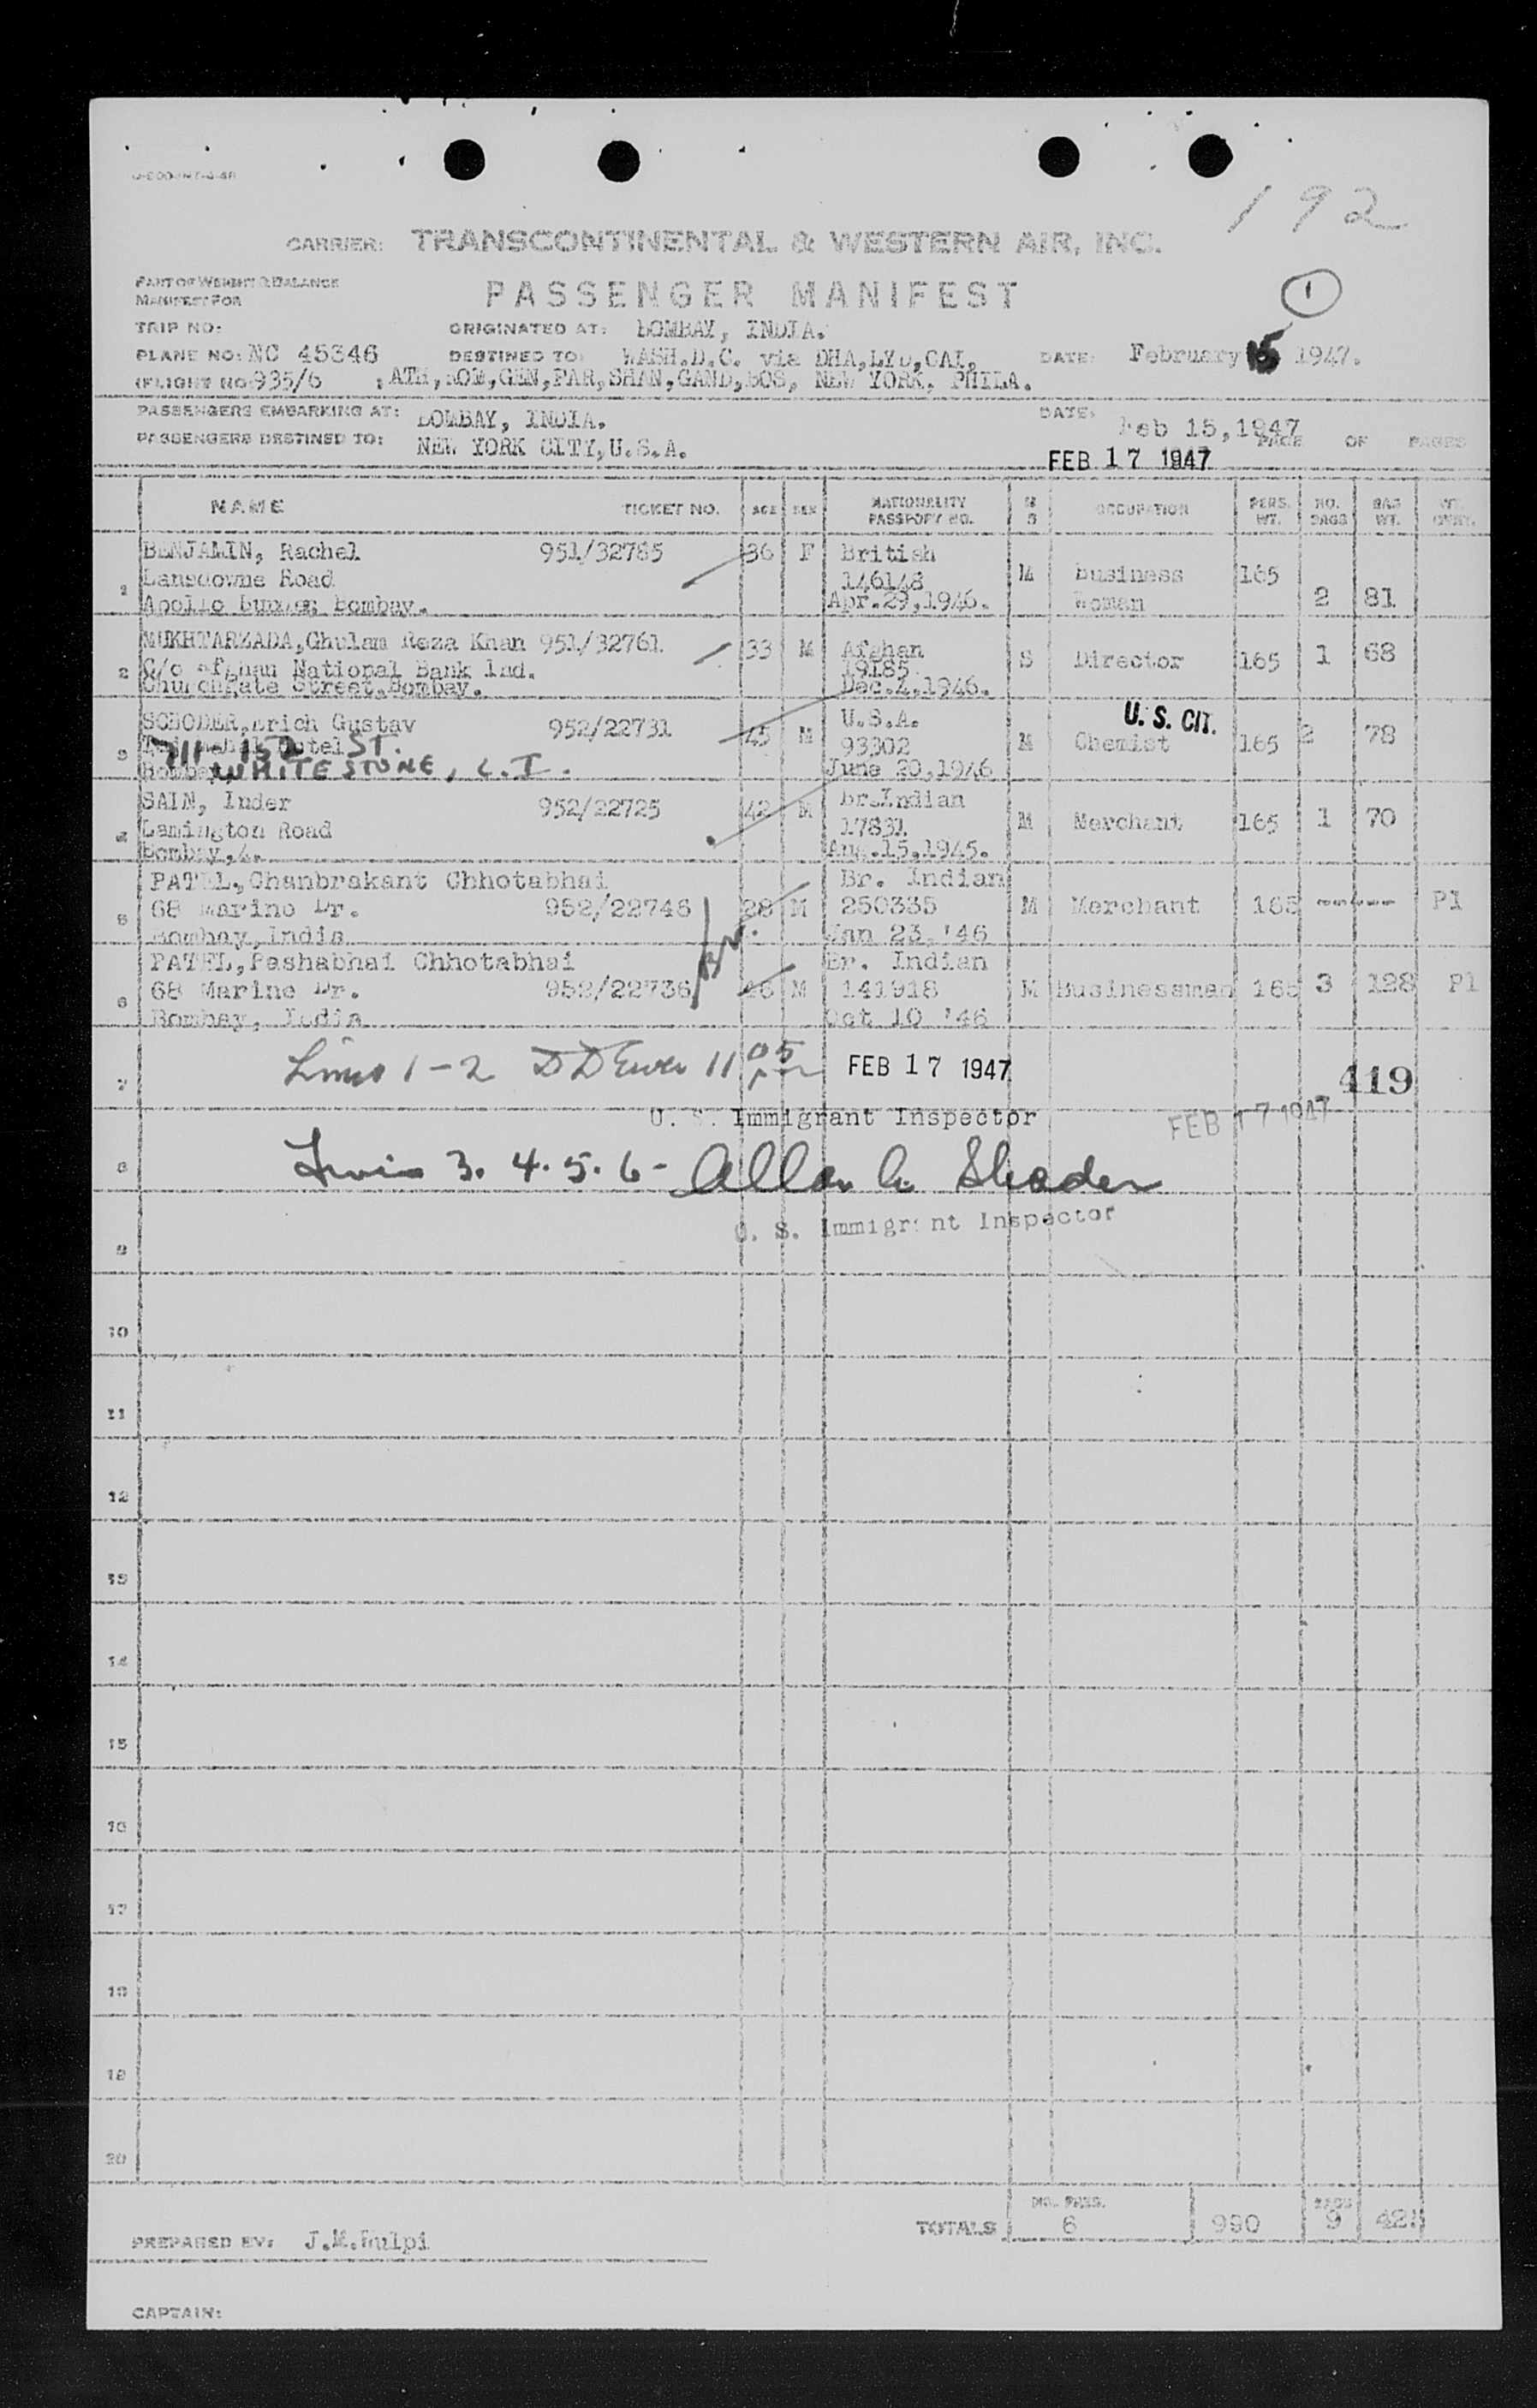 192
CARRIER: TRANSCONTINENTAL & WESTERN AIR, INC.
PART OF WEIGHT & BALANCE
MANIFEST FOR
PASSENGER MANIFEST
1
TRIP NO:
ORIGINATED AT: BOMBAY, INDIA.
PLANE NO: NC 45346
DESTINED TO: WASH.D.C. via DHA,LYD,CAI,
DATE: February 15 1947.
(FLIGHT NO 935/6
ATH,ROM,GEN,PAR,SHAN,GAND,BOS, NEW YORK, PHILA.
PASSENGERS EMBARKING AT: BOMBAY, INDIA.
DATE: Feb 15,1947
PASSENGERS DESTINED TO: NEW YORK CITY,U.S.A.
PAGE OF PAGES
FEB 17 1947
NAME TICKET NO. AGE SEX NATIONALITY PASSPORT NO. M S OCCUPATION PERS. WT. NO. BAGS BAG WT.
1 BENJAMIN, Rachel 951/32765 36 F British
Lansdowne Road 146148 M Business 165
Apollo Bombay. Apr.29,1946. Woman 2 81
2 MUKHTARZADA,Ghulam Reza Khan 951/32761 33 M Afghan
C/o Afghan National Bank Ind. 19185 S Director 165 1 68
Churchgate Street,Bombay. Dec.4,1946.
3 SCHODER,Erich Gustav 952/22731 45 M U.S.A. U.S. CIT.
Hotel 93302 M Chemist 165 2 78
711- 152 ST.
Bombay June 20,1946
WHITESTONE, L.I.
4 SAIN, Inder 952/22725 42 M Br.Indian
Lamington Road 17831 M Merchant 165 1 70
Bombay,4. Aug.15,1945.
5 PATEL,Chanbrakant Chhotabhai Br. Indian
68 Marine Dr. 952/22746 28 M 250335 M Merchant 165 ------ Pl
Bombay,India Jan 23,'46
6 PATEL,Pashabhai Chhotabhai Br. Indian
68 Marine Dr. 952/22736 M 141918 M Businessman 165 3 128 Pl
Bombay, India Oct 10 '46
7 Lines 1-2 1105 FEB 17 1947 419
U. S. Immigrant Inspector FEB 17 1947
8 Lines 3. 4. 5. 6- Allan Shader
U. S. Immigrant Inspector
9
10
11
12
13
14
15
16
17
18
19
20
NO. PASS. BAGS
TOTALS 6 990 9 425
PREPARED BY: J.M.
CAPTAIN: